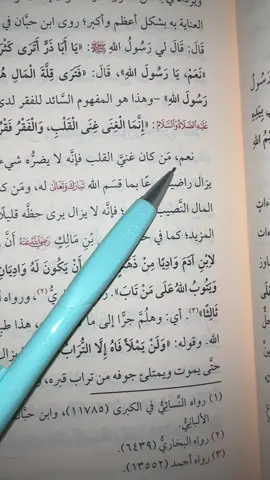 العناية به بشكل أعظم وأكبر؛ روى ابن حبان في
قالَ: قالَ لي رَسُولُ اللهِ ﷺ: «يَا أَبَا ذَرٍّ أَتَرَى كَثْرَ
«نَعَمْ، يَا رَسُولَ اللهِ»، قَالَ: «فَتَرَى قِلَّةَ المَالِ هُ
رَسُولَ اللهِ» -وهذا هو المفهوم السَّائد للفقر لدى
عَلَيْهِ الصَّلَاةُ وَالسَّلَامُ: «إِنَّمَا الْغِنَى غِنَى الْقَلْبِ، وَالْفَقْرُ فَقْرُ
نعم، مَن كان غنيَّ القلب فإنَّه لا يضرُّه شيء
يزال راضيـ ـعًا بما قسَم الله تَبَارَكَ وَتَعَالَى له، ومَن كا
المال النَّصيبَ ؛ فإنَّه لا يزال يرى حظَّه قليلًا
المزيد؛ كما بْنِ مَالِكٍ رَضِيَ اللهُ عَنْهُ أَنَّ رَ
لِابْنِ آدَمَ وَادِيًا مِنْ ذَهَـ أَنْ يَكُونَ لَهُ وَادِيَانِ
وَيَتُوبُ اللهُ عَلَى مَنْ تَابَ». (٢)، ورواه أ
ثَالِثًا»(٣). أي: وهلُمَّ جرًّا إلى ما هذا طبـ
الله. وقوله: «وَلَنْ يَمْلَأَ فَاهُ إِلَّا التُّرَابُ يزال
حتَّى يموت ويمتلئ جوفه من تراب قبره، و
(١) رواه النَّسائيُّ في الكبرى (١١٧٨٥)، وابن حبَّان
الألبانيُّ.
(٢) رواه البخاريُّ (٦٤٣٩).
(٣) رواه أحمد (١٣٥٥٢).